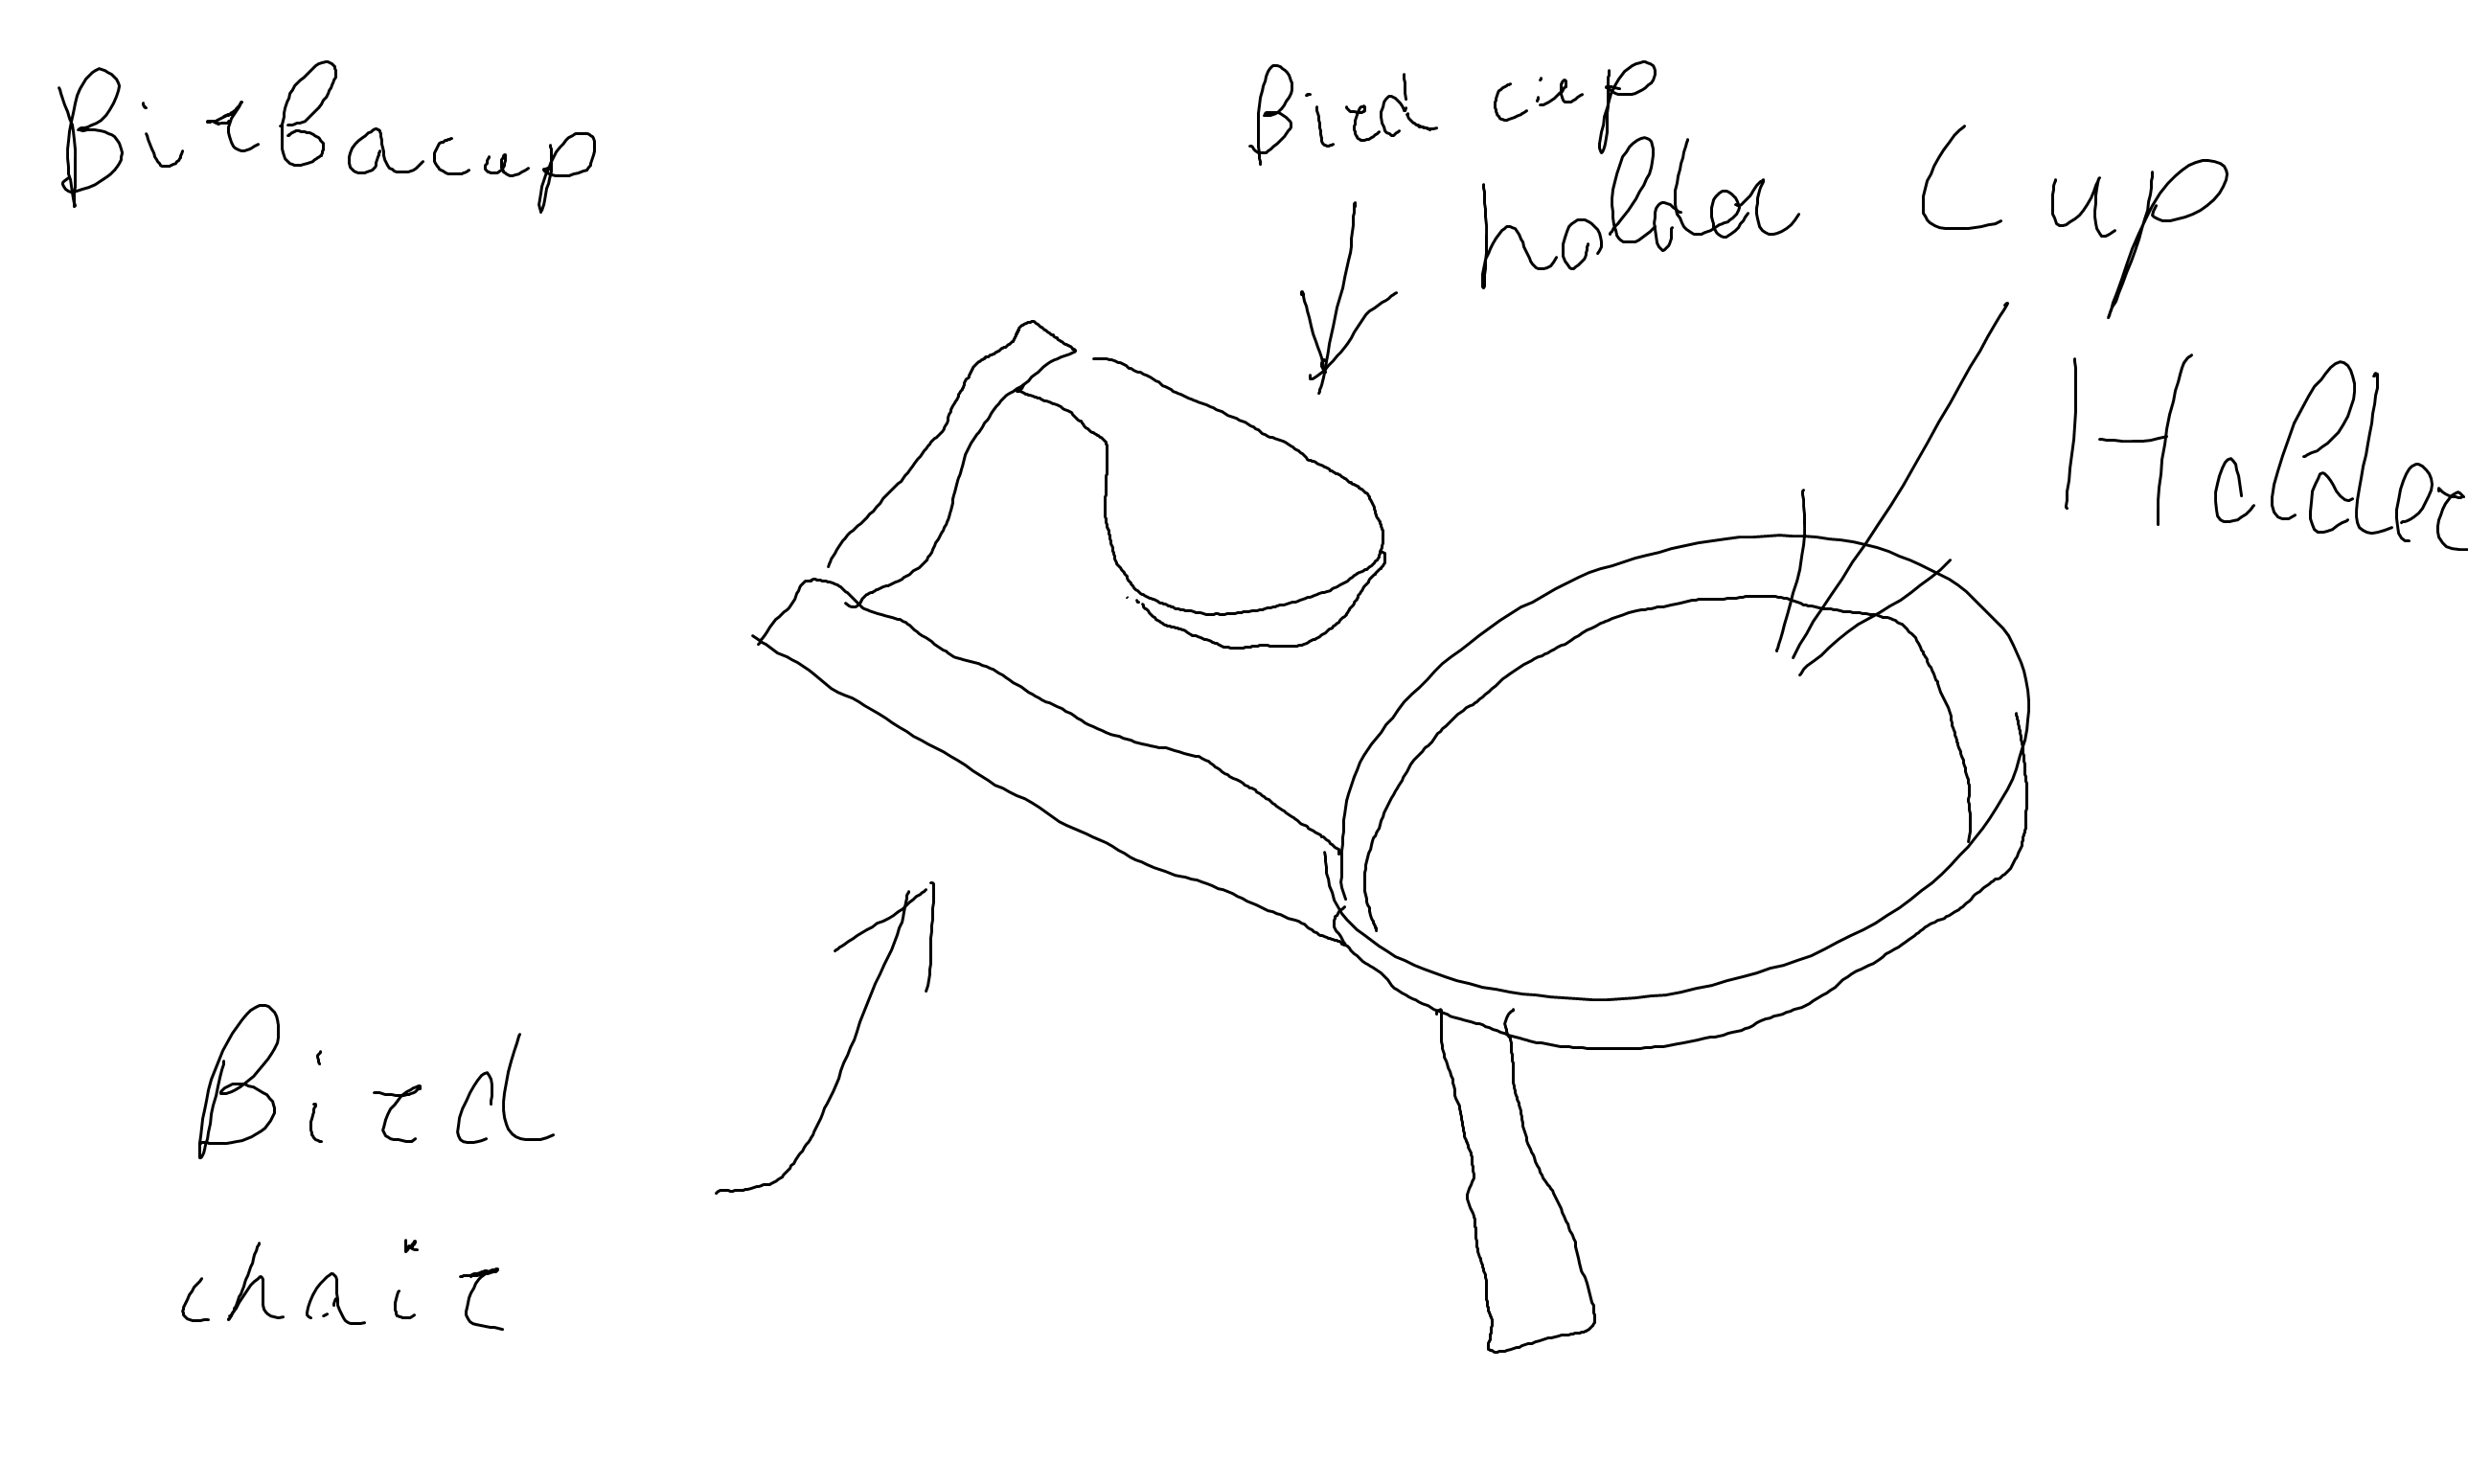 Bird Bacup
Bird cup
holder
Cup
Holder
Bird
chair